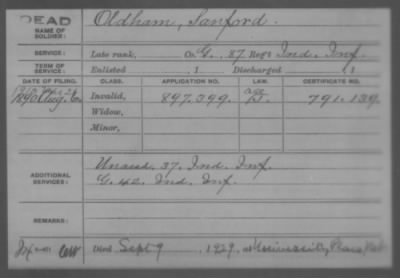 DEAD
NAME OF SOLDIER:
Oldham, Sanford.
SERVICE:
Late rank, Co. G., 87 Reg't Ind. Inf.
TERM OF SERVICE:
Enlisted , 1 Discharged , 1
DATE OF FILING. CLASS. APPLICATION NO. LAW. CERTIFICATE NO.
1890 Aug. Invalid, 897.399. 791.139
Widow,
Minor,
ADDITIONAL SERVICES:
Unassd. 37. Ind. Inf.
G. 42. Ind. Inf.
REMARKS:
Died Sept 9 , 1929, at University Place, Neb